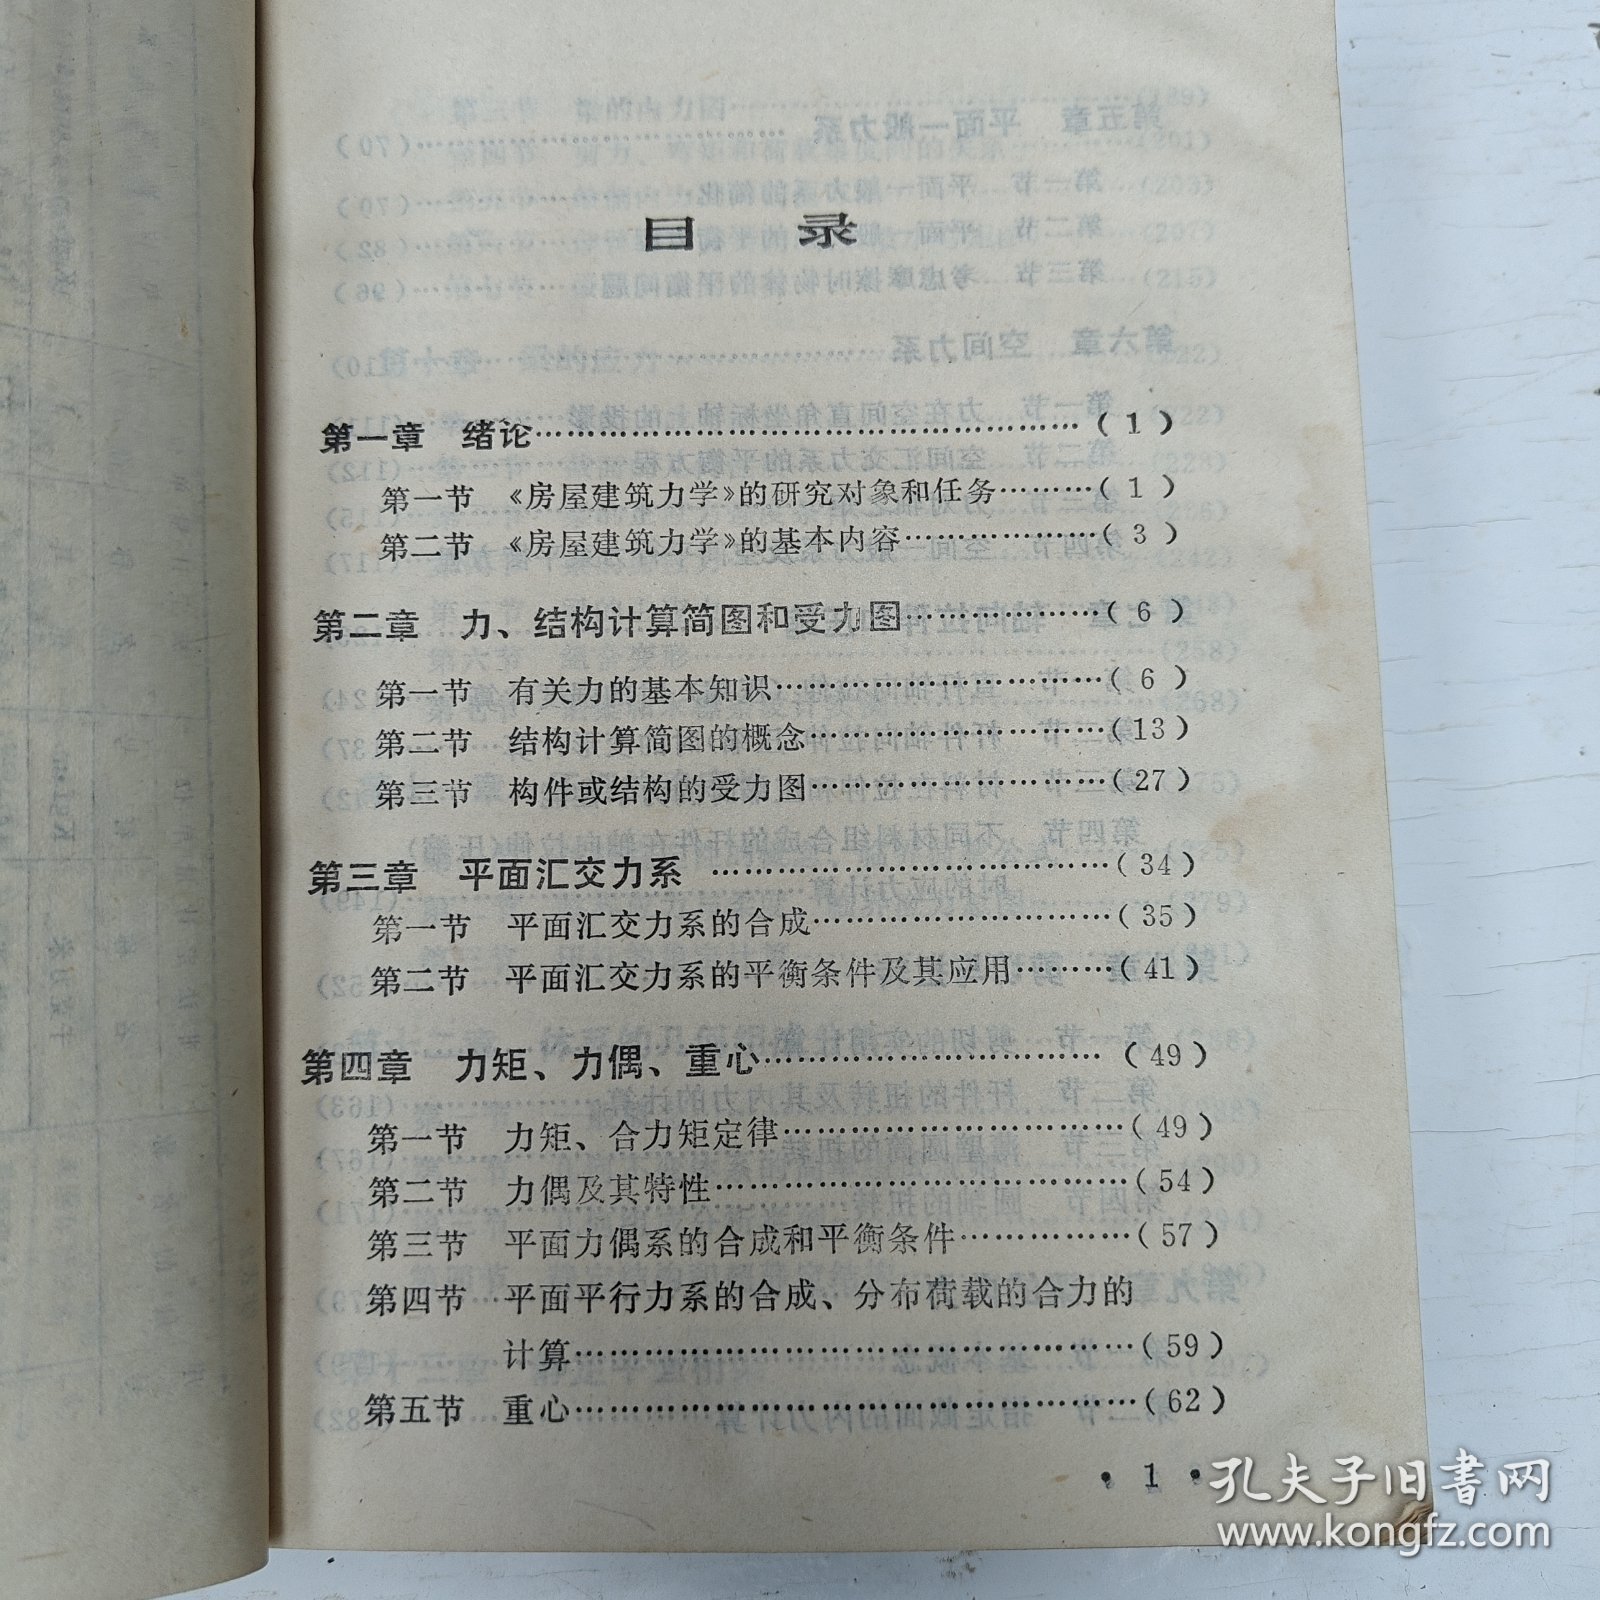 目 录
第一章 绪论……………………………………………（1）
第一节 《房屋建筑力学》的研究对象和任务………（1）
第二节 《房屋建筑力学》的基本内容………………（3）
第二章 力、结构计算简图和受力图………………（6）
第一节 有关力的基本知识…………………………（6）
第二节 结构计算简图的概念………………………（13）
第三节 构件或结构的受力图………………………（27）
第三章 平面汇交力系 ………………………………（34）
第一节 平面汇交力系的合成………………………（35）
第二节 平面汇交力系的平衡条件及其应用………（41）
第四章 力矩、力偶、重心…………………………（49）
第一节 力矩、合力矩定律…………………………（49）
第二节 力偶及其特性………………………………（54）
第三节 平面力偶系的合成和平衡条件……………（57）
第四节 平面平行力系的合成、分布荷载的合力的
计算……………………………………………（59）
第五节 重心……………………………………………（62）
• 1 •
孔夫子旧书网
www.kongfz.com